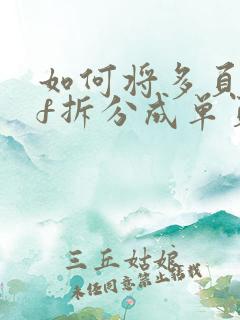 如何将多页
f拆分成单
三丘姑娘
未经同意禁止转载